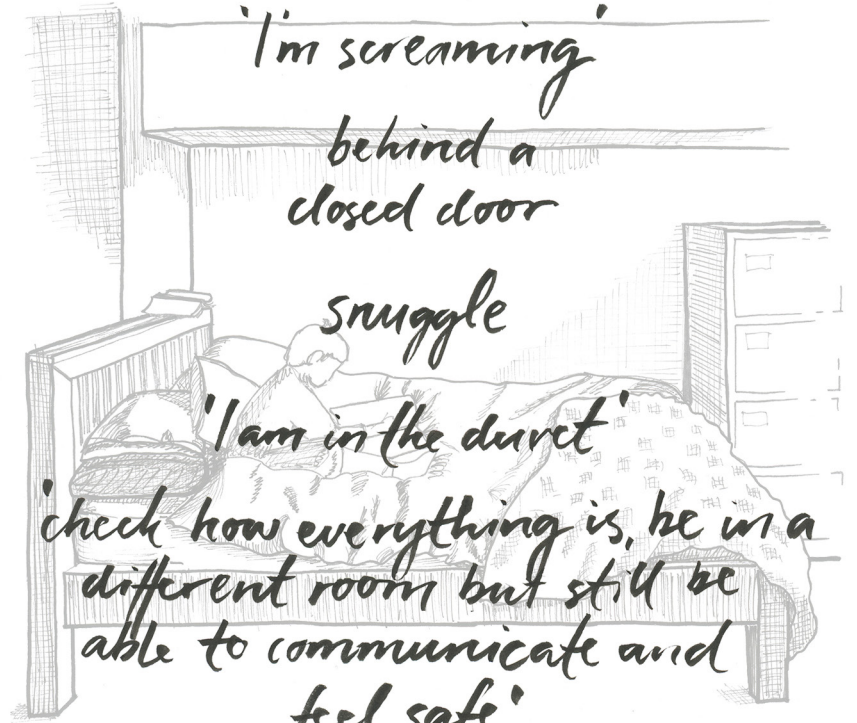 'I'm screaming'
behind a
closed door
snuggle
'I am in the duvet'
'check how everything is, be in a
different room but still be
able to communicate and
feel safe'